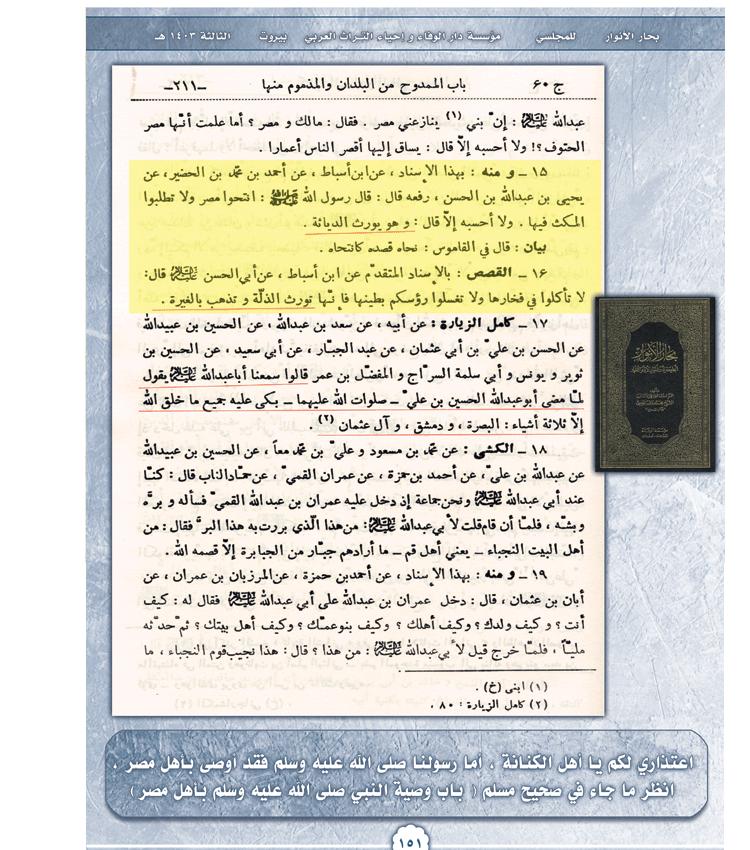 بحار الأنوار للمجلسي مؤسسة دار الوفاء و إحياء التراث العربي بيروت الثالثة ١٤٠٣ هـ
ج ٦٠ باب الممدوح من البلدان والمذموم منها ـ٢١١ـ
عبدالله عليه السلام : إن بني (١) ينازعني مصر . فقال : مالك و مصر ؟ أما علمت أنّها مصر
الحتوف ؟! ولا أحسبه إلّا قال : يساق إليها أقصر الناس أعمارا .
١٥ ـ و منه : بهذا الإسناد ، عن ابن أسباط ، عن أحمد بن محمّد بن الحضير، عن
يحيى بن عبدالله بن الحسن ، رفعه قال : قال رسول الله ﷺ : انتحوا مصر ولا تطلبوا
المكث فيها . ولا أحسبه إلّا قال : و هو يورث الدياثة .
بيان : قال في القاموس : نحاه قصده كانتحاه .
١٦ ـ القصص : بالإسناد المتقدّم عن ابن أسباط ، عن أبي الحسن عليه السلام قال:
لا تأكلوا في فخارها ولا تغسلوا رؤسكم بطينها فإنّها تورث الذلّة و تذهب بالغيرة .
١٧ ـ كامل الزيارة : عن أبيه ، عن سعد بن عبدالله ، عن الحسين بن عبيدالله
عن الحسن بن عليّ بن أبي عثمان ، عن عبد الجبّار ، عن أبي سعيد ، عن الحسين بن
ثوير و يونس و أبي سلمة السرّاج و المفضّل بن عمر قالوا سمعنا أباعبدالله عليه السلام يقول
لمّا مضى أبوعبدالله الحسين بن عليّ ـ صلوات الله عليهما ـ بكى عليه جميع ما خلق الله
إلّا ثلاثة أشياء : البصرة ، و دمشق ، و آل عثمان (٢) .
١٨ ـ الكشى : عن محمّد بن مسعود و عليّ بن محمّد معاً ، عن الحسين بن عبيدالله
عن عبدالله بن عليّ ، عن أحمد بن حمزة ، عن عمران القميّ ، عن حمّاد الناب قال : كنّا
عند أبي عبدالله عليه السلام ونحن جماعة إذ دخل عليه عمران بن عبدالله القميّ فسأله و برّه
وبشّه ، فلمّا أن قام قلت لأبي عبدالله عليه السلام: من هذا الّذي بررت به هذا البرّ؟ فقال : من
أهل البيت النجباء ـ يعني أهل قم ـ ما أرادهم جبّار من الجبابرة إلّا قصمه الله .
١٩ ـ و منه : بهذا الإسناد ، عن أحمد بن حمزة ، عن المرزبان بن عمران ، عن
أبان بن عثمان ، قال : دخل عمران بن عبدالله على أبي عبدالله عليه السلام فقال له : كيف
أنت ؟ و كيف ولدك ؟ وكيف أهلك ؟ وكيف بنوعمّك ؟ وكيف أهل بيتك ؟ ثمّ حدّثه
مليّاً ، فلمّا خرج قيل لأبي عبدالله عليه السلام : من هذا ؟ قال : هذا نجيب قوم النجباء ، ما
(١) ابنى (خ) .
(٢) كامل الزيارة : ٨٠ .
اعتذاري لكم يا أهل الكنانة ، أما رسولنا صلى الله عليه وسلم فقد أوصى بأهل مصر ،
انظر ما جاء في صحيح مسلم ( باب وصية النبي صلى الله عليه وسلم بأهل مصر )
١٥١